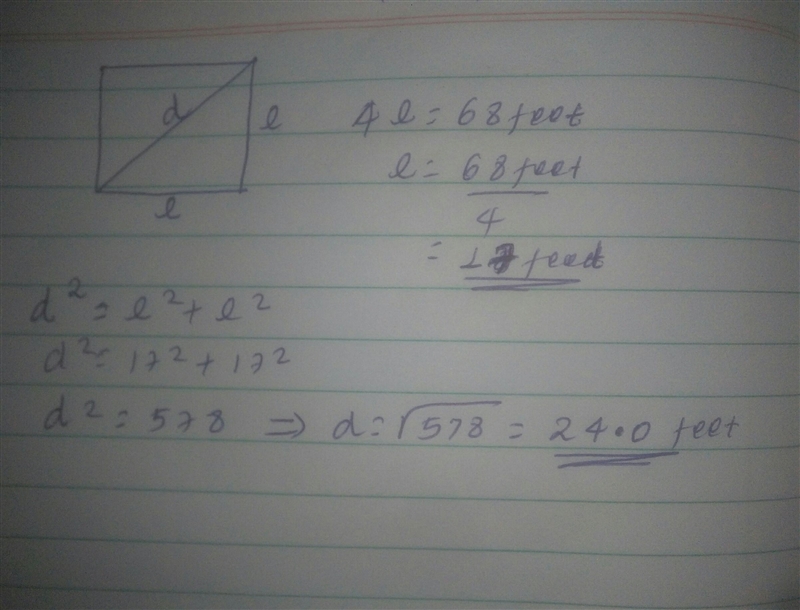 d
l
l
4 l = 68 feet
l = 68 feet
4
= 17 feet
d² = l² + l²
d² = 17² + 17²
d² = 578 ⇒ d = √578 = 24.0 feet